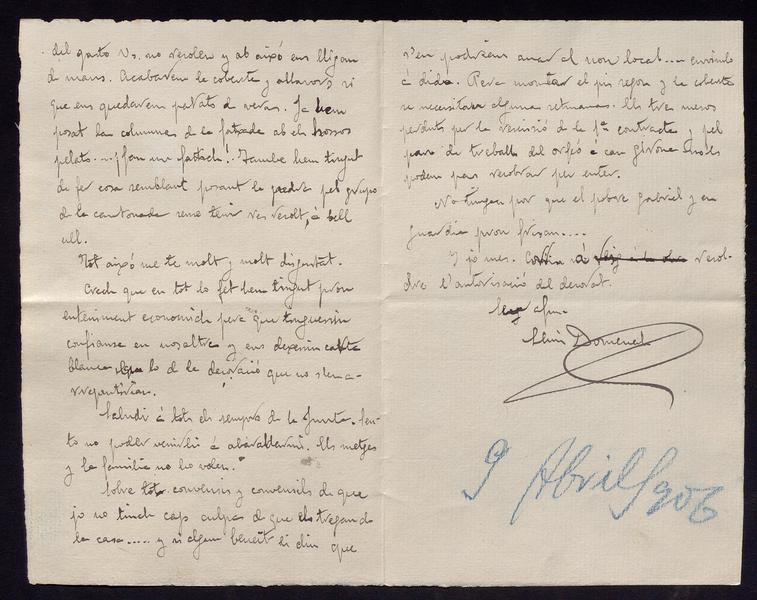 del gasto Vs. no resolen y ab aixó ens lligan
de mans. Acabarem la coberta y allavors si
que ens quedarem parats de veras. Ja hem
posat las columnas de la fatxada ab els trossos
pelats....¡fan un fástich!. Tambe hem tingut
de fer cosa semblant posant la pedra pel grupo
de la cantonada sense tenir res resolt, á bell
ull.
Tot aixó me te molt y molt disgustat.
Crech que en tot lo fet hem tingut prou
enteniment economich pera que tinguessin
confiansa en nosaltres y ens deixessin carta
blanca lo de la decoració que no s'en a-
rrepentirían.
Saludi á tots els sempres de la Junta. Sen-
to no poder venirhi á abarallarmi. Els metges
y la familia no ho volen.
Sobre tot convensis y convensils de que
jo no tinch cap culpa de que els tregan de
la casa..... y si algun beneit li diu que
s'en podrían anar al nou local...
á dida. Pera montar el pis segon y la coberta
se necesitavan algunas setmanas. Els tres mesos
perduts per la rescisió de la 1ª contracta y pel
paro de treballs del orfeó á can Girona no els
podem pas recobrar per enter.
No tingan por que el pobre Gabriel y en
Guardia prou frisan....
Y jo mes. Corria á resol-
dre l'autorisació del decorat.
Seu afm.
Lluis Domenech
9 Abril 906